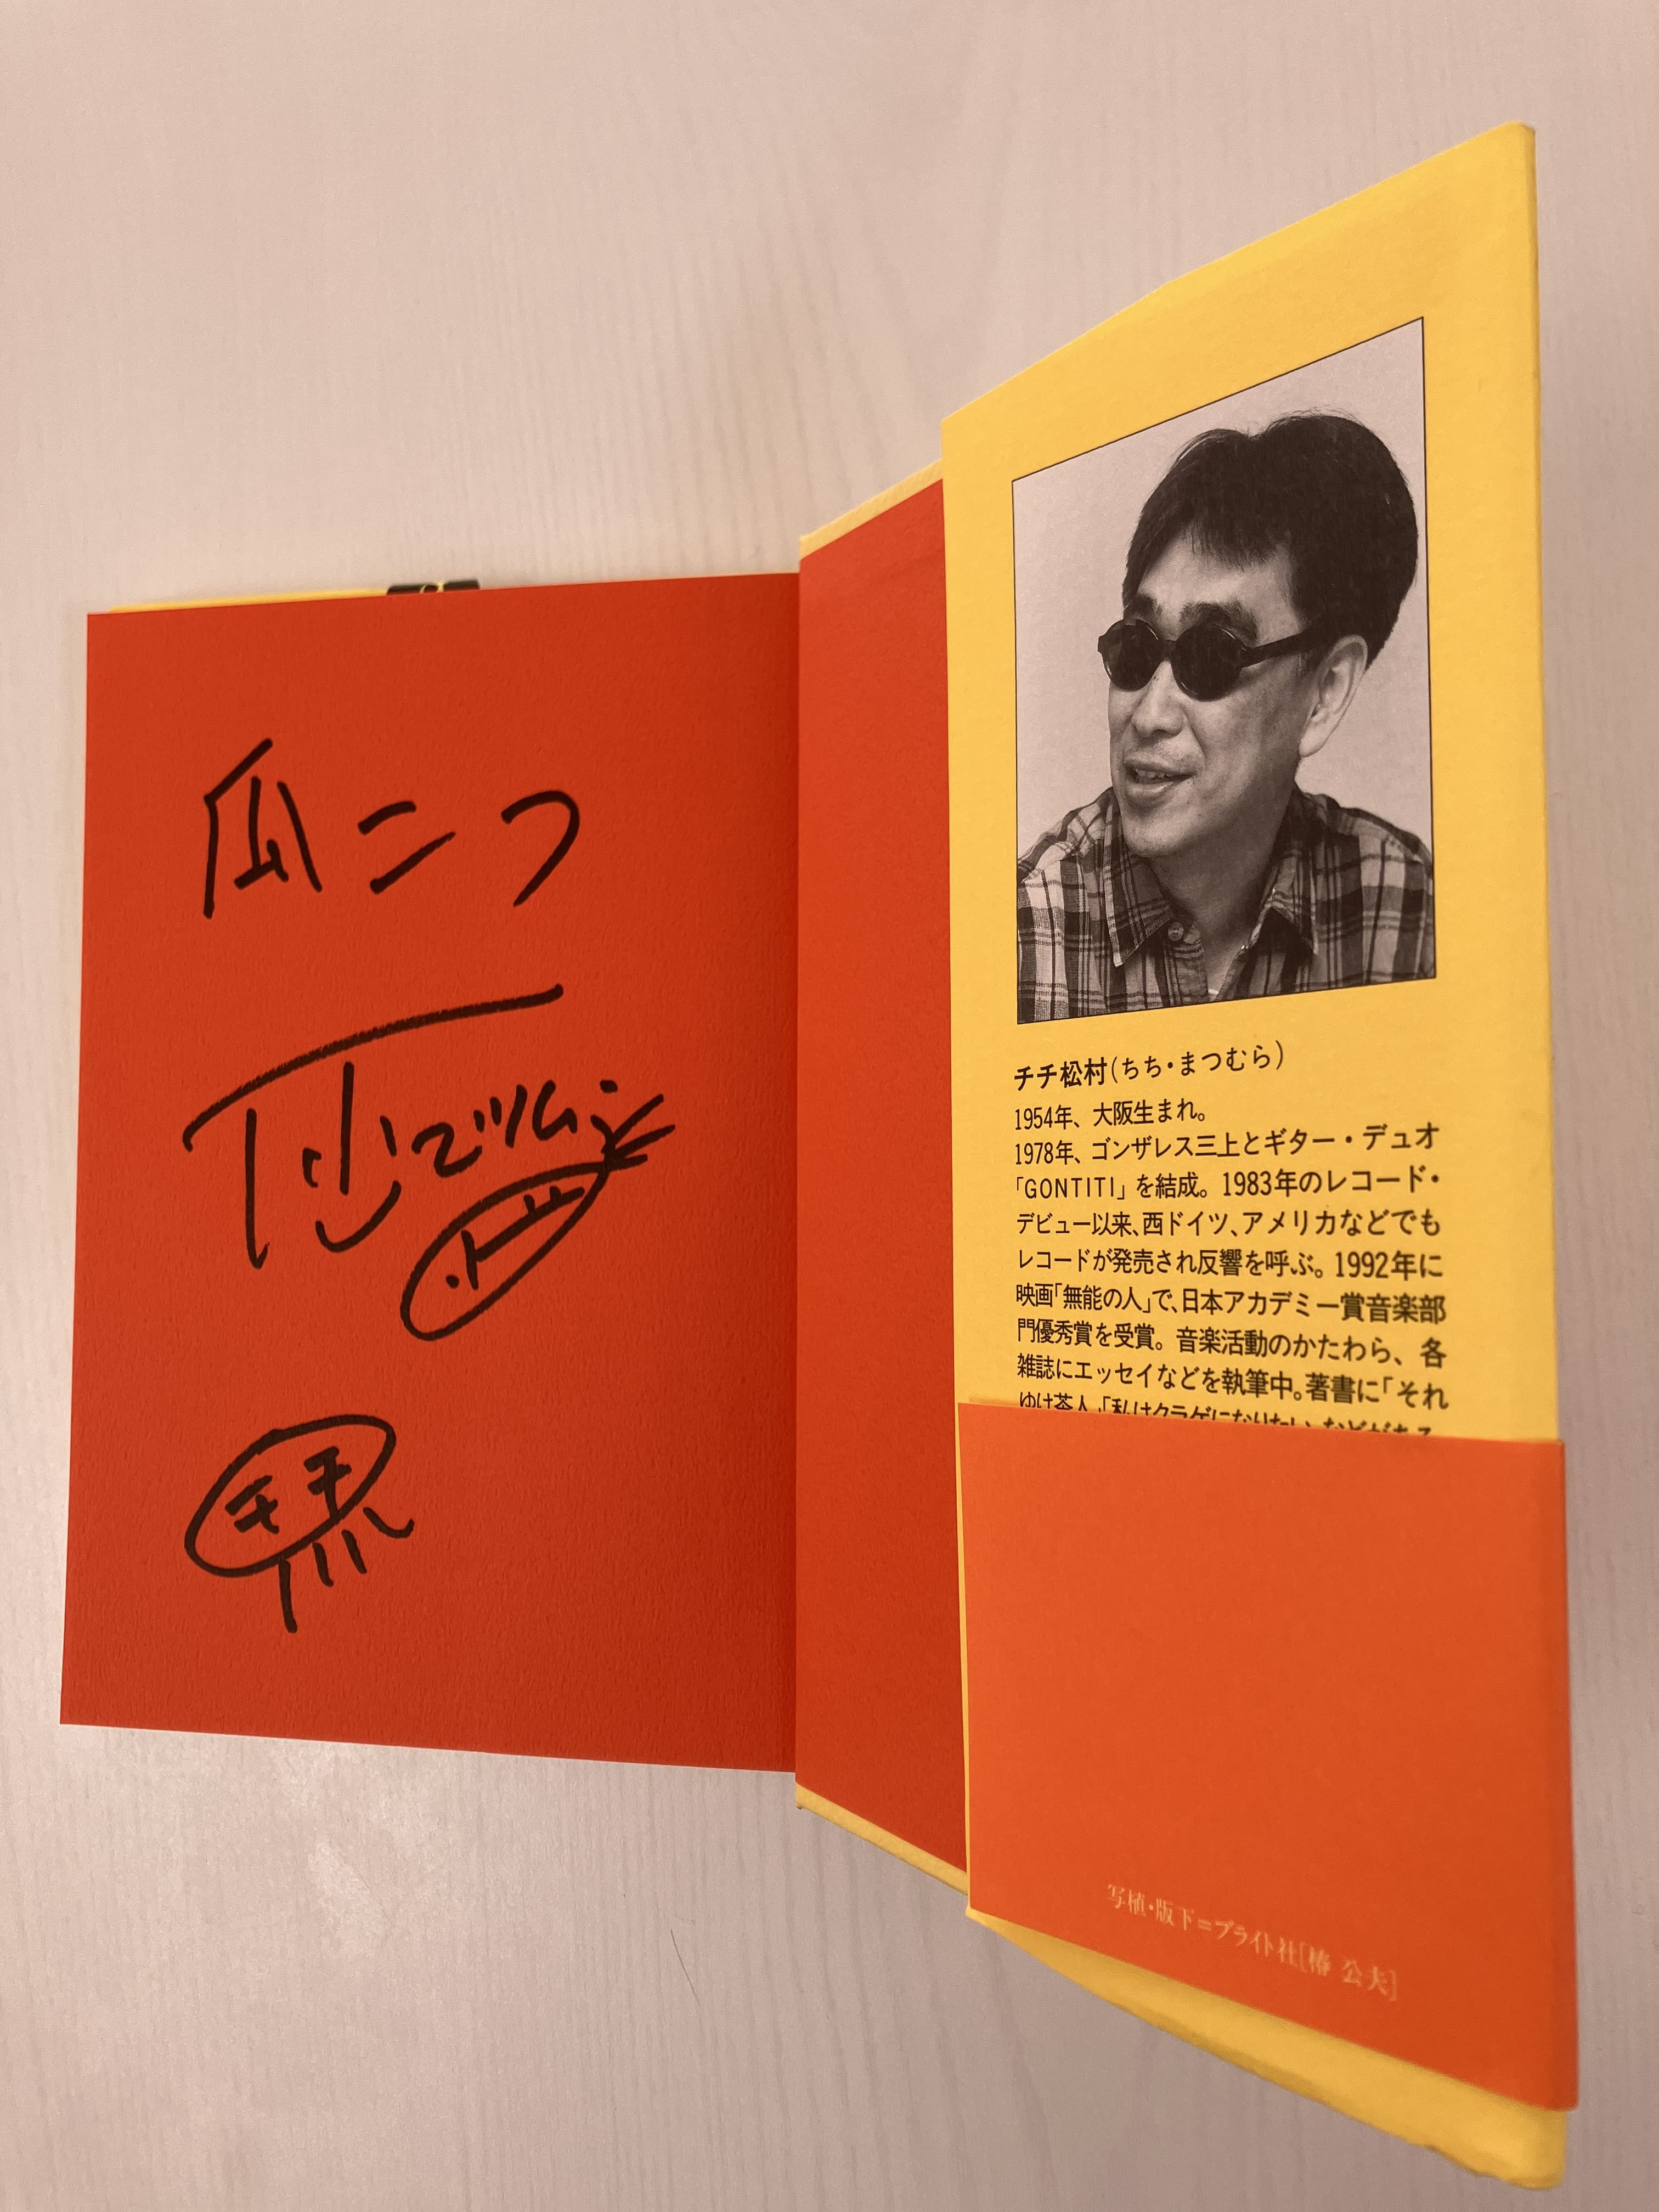 瓜二つ
チチ
チチ松村(ちち・まつむら)
1954年、大阪生まれ。
1978年、ゴンザレス三上とギター・デュオ
「GONTITI」を結成。1983年のレコード・
デビュー以来、西ドイツ、アメリカなどでも
レコードが発売され反響を呼ぶ。1992年に
映画「無能の人」で、日本アカデミー賞音楽部
門優秀賞を受賞。音楽活動のかたわら、各
雑誌にエッセイなどを執筆中。著書に「それ
ゆけ茶人」「私はクラゲになりたい」などがある
写植・版下=ブライト社[椿 公夫]